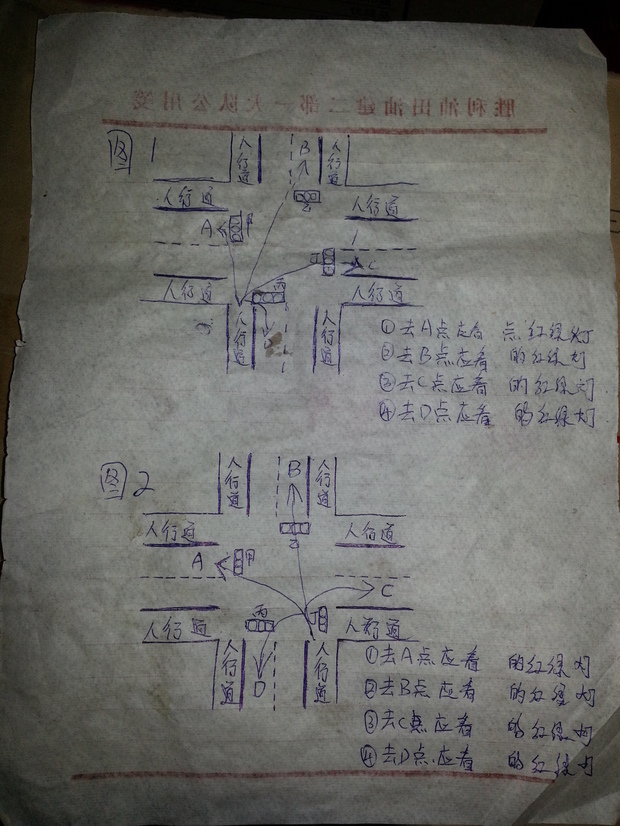 胜利油田油建二部一大队公用笺
图1
人行道
B
人行道
乙
人行道
人行道
A
甲
丁
C
人行道
丙
人行道
人行道
D
人行道
①去A点应看 点红绿灯
②去B点应看 的红绿灯
③去C点应看 的红绿灯
④去D点应看 的红绿灯
图2
人行道
B
人行道
人行道
乙
人行道
A
甲
C
人行道
丙
丁
人行道
人行道
D
人行道
①去A点应看 的红绿灯
②去B点应看 的红绿灯
③去C点应看 的红绿灯
④去D点应看 的红绿灯